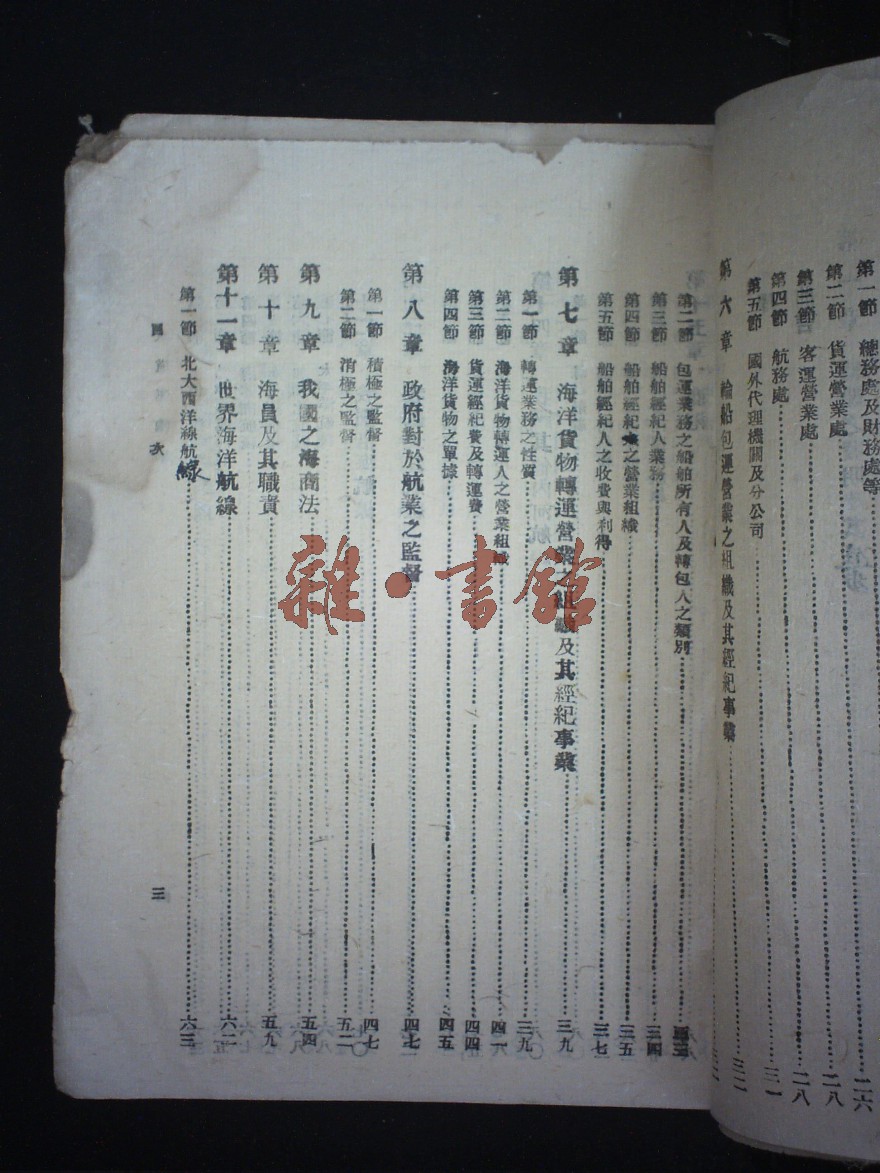 第一節 總務處及財務處等……二六
第二節 貨運營業處……二八
第三節 客運營業處……二八
第四節 航務處……三一
第五節 國外代理機關及分公司……三二
第六章 輪船包運營業之組織及其經紀事業
第二節 包運業務之船舶所有人及轉包人之類別
第三節 船舶經紀人業務……三四
第四節 船舶經紀之營業組織……三五
第五節 船舶經紀人之收費與利得……三七
第七章 海洋貨物轉運營業之組織及其經紀事業……三九
第一節 轉運業務之性質……三九
第二節 海洋貨物轉運人之營業組織……四一
第三節 貨運經紀費及轉運費……四四
第四節 海洋貨物之單據……四五
第八章 政府對於航業之監督……四七
第一節 積極之監督……四七
第二節 消極之監督……五二
第九章 我國之海商法……五四
第十章 海員及其職責……五九
第十一章 世界海洋航線……六二
第一節 北大西洋線航線……六三
目次
三
雜·書館